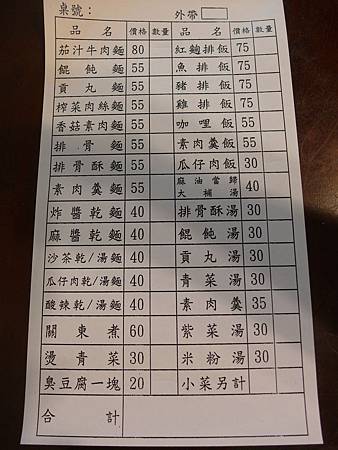 桌號： 外帶
品名 價格 數量 品名 價格 數量
茄汁牛肉麵 80 紅麴排飯 75
餛飩麵 55 魚排飯 75
貢丸麵 55 豬排飯 75
榨菜肉絲麵 55 雞排飯 75
香菇素肉麵 55 咖哩飯 55
排骨麵 55 素肉羹飯 55
排骨酥麵 55 瓜仔肉飯 30
素肉羹麵 55 麻油當歸大補湯 40
炸醬乾麵 40 排骨酥湯 30
麻醬乾麵 40 餛飩湯 30
沙茶乾/湯麵 40 貢丸湯 30
瓜仔肉乾/湯麵 40 青菜湯 30
酸辣乾/湯麵 40 素肉羹 35
關東煮 60 紫菜湯 30
燙青菜 30 米粉湯 30
臭豆腐一塊 20 小菜另計
合計